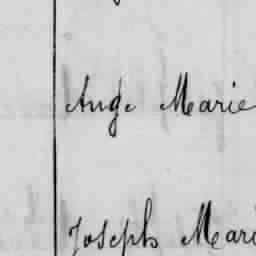 Ange Marie
Joseph Mari